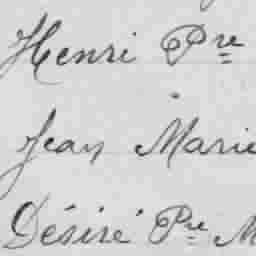 Henri Pre
Jean Marie
Désiré Pre M